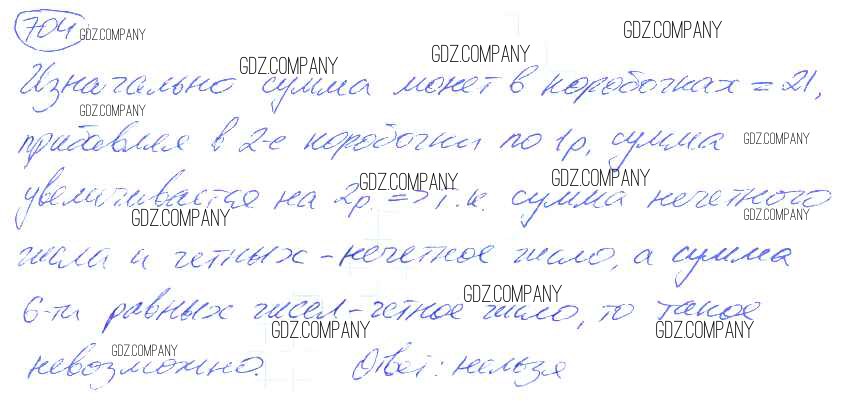 704 GDZ.COMPANY GDZ.COMPANY GDZ.COMPANY
Изначально сумма монет в коробочках = 21, GDZ.COMPANY
GDZ.COMPANY
прибавляя в 2-е коробочки по 1р, сумма GDZ.COMPANY
увеличивается на 2р. => т.к. сумма нечетного GDZ.COMPANY GDZ.COMPANY
GDZ.COMPANY GDZ.COMPANY
числа и четных - нечетное число, а сумма
6-ти равных чисел - четное число, то такое GDZ.COMPANY
GDZ.COMPANY GDZ.COMPANY
невозможно. Ответ: нельзя GDZ.COMPANY